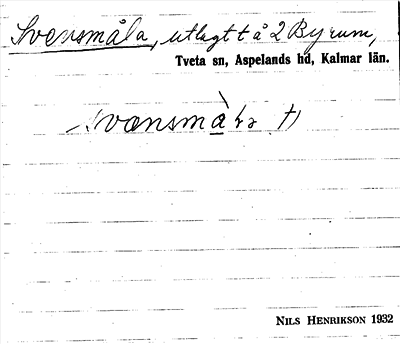 Svensmåla, utlagt t å 2 Byrum,
Tveta sn, Aspelands hd, Kalmar län.
NILS HENRIKSON 1932